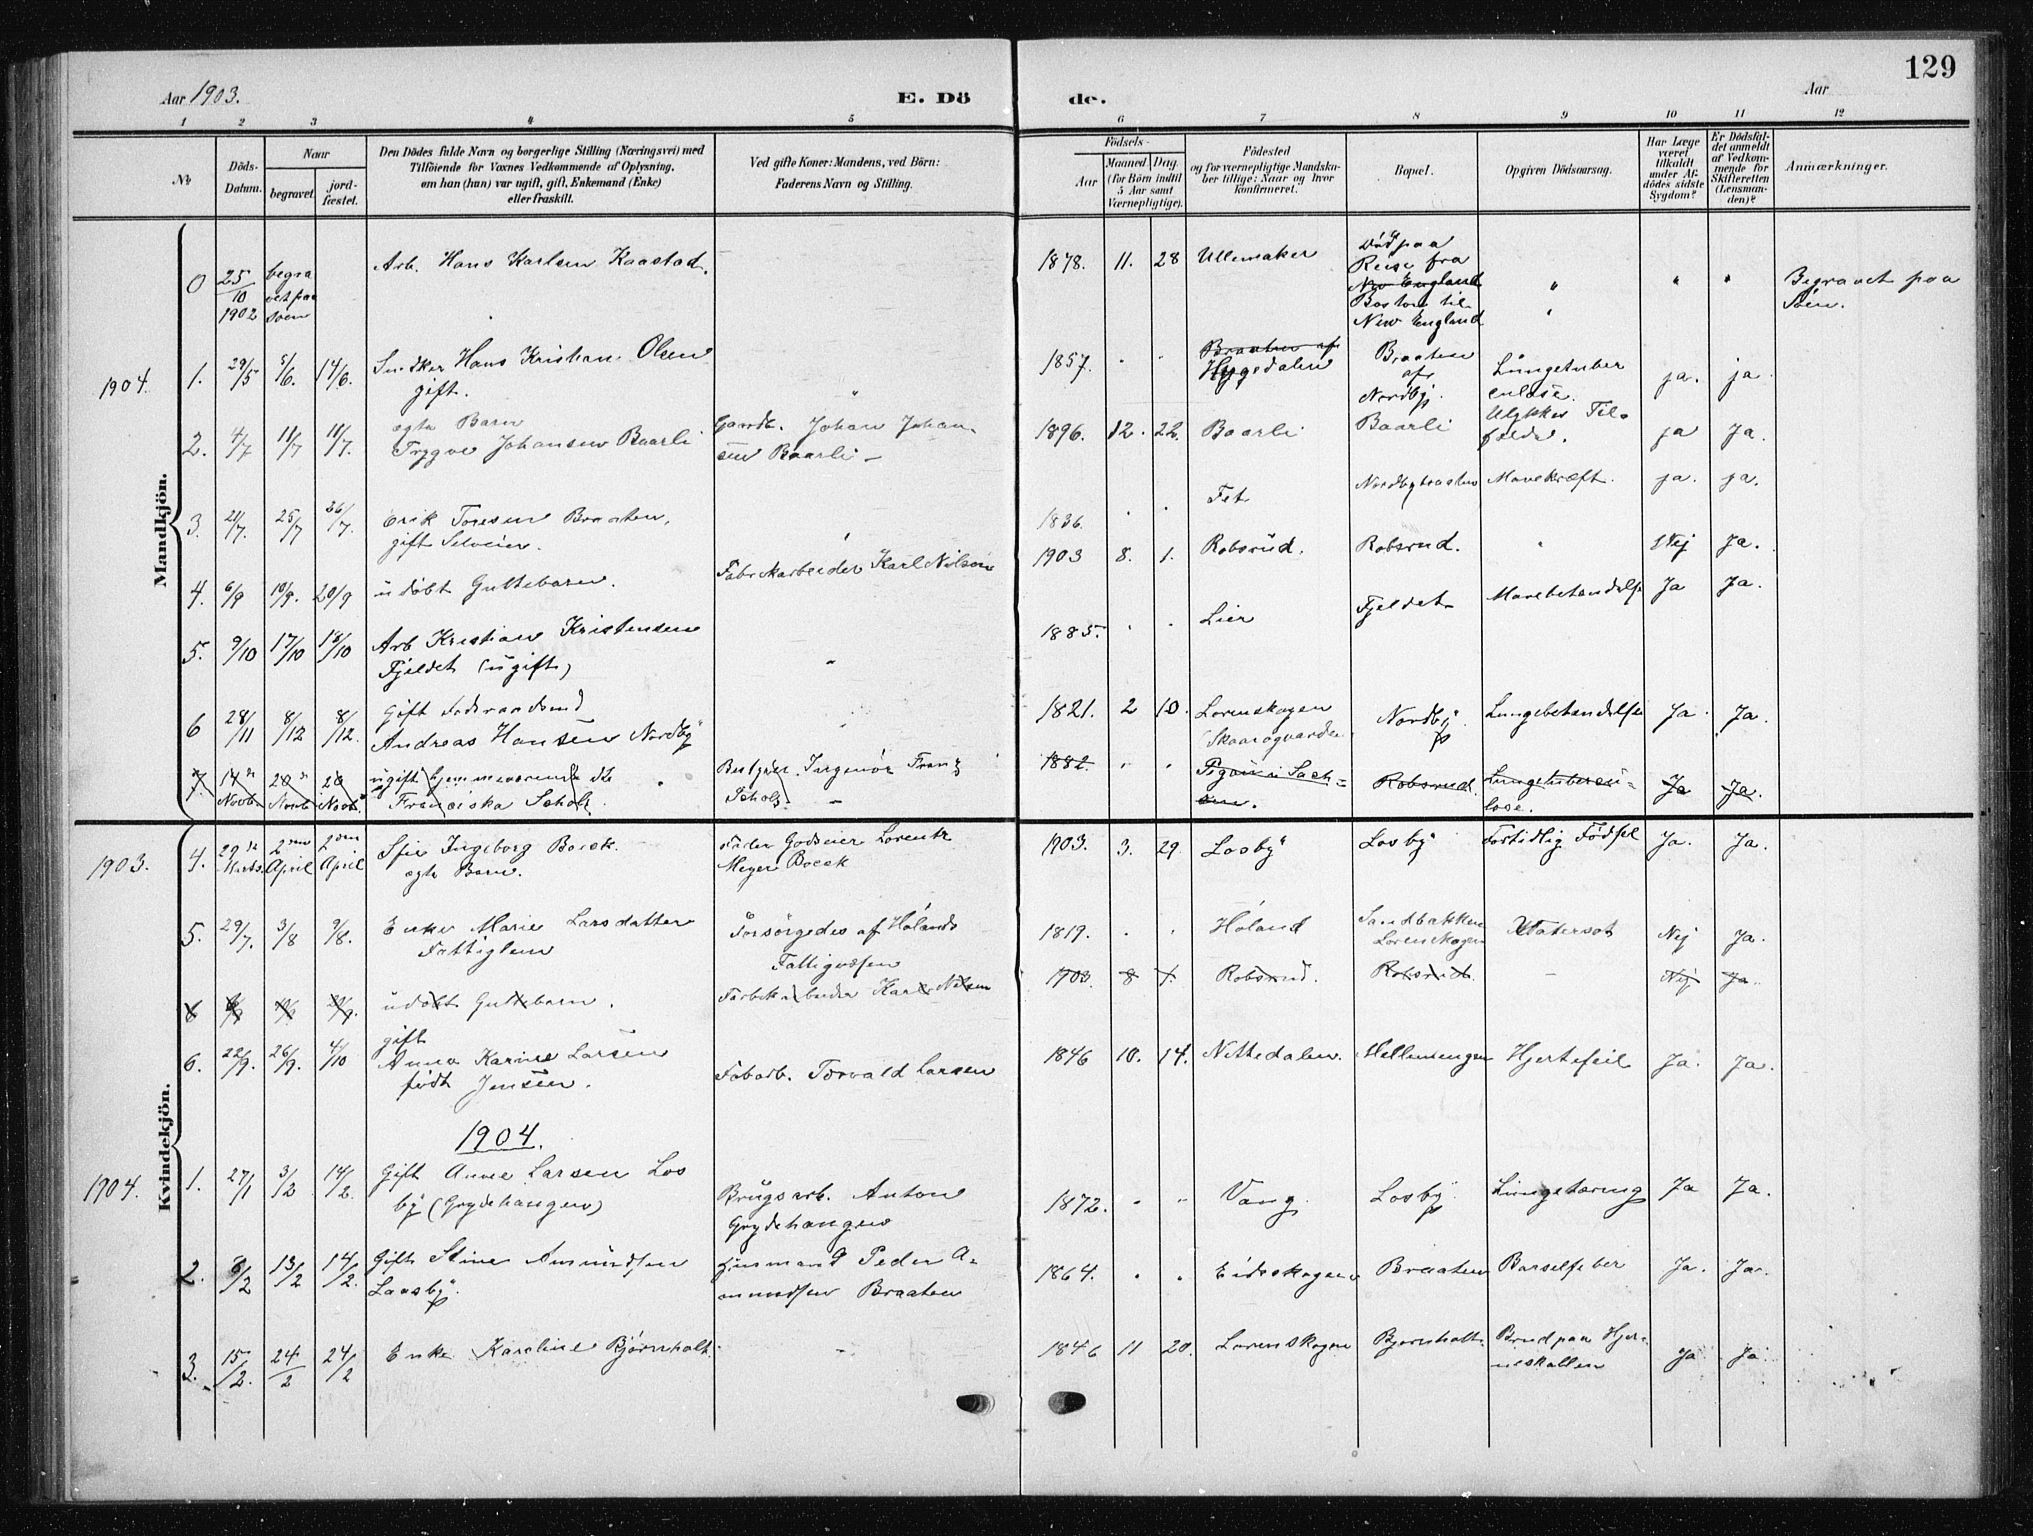 129
Aar 1903.
E. Dö
de.
Aar
1 2 3 4 5 6 7 8 9 10 11 12
№
Döds-
Datum.
Naar
begravet.
jord-
fæstet.
Den Dödes fulde Navn og borgerlige Stilling (Næringsvei) med
Tilföiende for Voxnes Vedkommende af Oplysning,
om han (hun) var ugift, gift, Enkemand (Enke)
eller fraskilt.
Ved gifte Koner: Mandens, ved Börn:
Faderens Navn og Stilling.
Födsels-
Aar
Maaned
Dag.
(for Börn indtil
5 Aar samt
Værnepligtige).
Födested
og for værnepligtige Mandska-
ber tillige: Naar og hvor
konfirmeret.
Bopæl.
Opgiven Dödsaarsag.
Har Læge
været
tilkaldt
under Af-
dödes sidste
Sygdom?
Er Dödsfal-
det anmeldt
af Vedkom-
mende for
Skifteretten
(Lensman-
den)?
Anmærkninger.
Mandkjön.
0 25/10 1902 begra
vet paa
Soen
Arb. Hans Karlsen Kaastad.
1878. 11. 28 Ullensaker
Död paa
Reise fra
New England
Boston til
New England
" " "
Begravet paa
Söen.
1904.
1. 29/5 5/6. 14/6. Snedker Hans Kristian Olsen
gift.
"
1857. " " Braaten af
Hygedalen
Braaten
af
Nordby.
Lungetuber
culose.
ja. ja
2. 4/7 11/7 11/7. ægte Barn
Trygve Johansen Baarli
Gaardb. Johan Johan
sen Baarli –
1896. 12. 22. Baarli Baarli Ulykkes Til-
fælde.
ja Ja.
3. 21/7. 25/7 26/7. Erik Toresen Braaten,
gift Selveier.
1836. . . Fet Nordbybraaten Mavekræft. ja. ja.
4. 6/9 10/9. 20/9 udöbt Guttebarn.
Fabrikarbeider Karl Nilsen
1903 8. 1. Robsrud. Robsrud. " Nej Ja.
5. 9/10 17/10 18/10 Arb Kristian Kristensen
Fjeldet (ugift)
"
1885. . . Lier Fjeldet Mavebetændelse Ja Ja.
6 28/11 8/12 8/12. Gift Föderaadsmd
Andreas Hansen Nordby
"
1821. 2 10. Lorenskogen
(Skaaragaarden
Nordby. Lungebetændelse Ja. Ja.
7. 14de Novb. 20de Novb 20 Novb. ugift hjemmeværende
Franciska Scholz.
Bestyrer Ingeniör Franz
Scholz –
1882. . . i Sach-
sen.
Robsrud. Lungetubercu-
lose.
Ja Ja.
Kvindekjön.
1903.
4. 29de Marts. 2den April 2den April Boeck.
ægte Barn.
Fader Godseier Lorentz
Meyer Boeck
1903. 3. 29. Losby Losby Fortidlig Födsel Ja. Ja.
5. 29/7. 3/8 9/8. Enke Marie Larsdatter
Fattiglem
Forsörgedes af Hölands
Fattigvæsen
1819. . . Höland Sandbakken
Lorenskogen
Vatersot Nej Ja.
udöbt Guttebarn.
Karl Nilsen
1903 8 1. Robsrud. Robsrud. – Nej Ja.
6. 22/9. 26/9. 4/10 gift
Anna Karine Larsen
född Jensen.
Fabarb. Torvald Larsen
1846 10. 14. Nittedalen. Hjertefeil Ja. Ja.
1904.
1904.
1. 27/1 3/2 14/2. Gift Anne Larsen Los
by (Grydehaugen)
Brugsarb. Anton
Grydehaugen
1872. " " Vang. Losby. Lungetæring Ja Ja.
2. 8/2 13/2 14/2. Gift Stine Amundsen
Laasby.
Husmand Peder A-
mundsen Braaten
1864. . . Eidsskogen Braaten Barselfeber Ja. Ja.
3. 15/2. 24/2 24/2 Enke Karoline Björnholt.
–
1846 11 20. Lorenskogen Bjornholt Brud paa Hjer-
neskallen
Ja Ja.